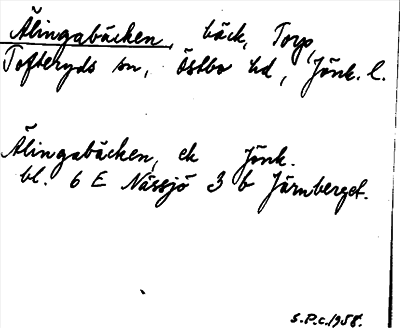 Älingabäcken, bäck, Torp,
Tofteryds sn, Östbo hd, Jönk. l.
Älingabäcken, ek Jönk.
bl. 6 E Nässjö 3 b Järnberget.
S.P.c. 1958.